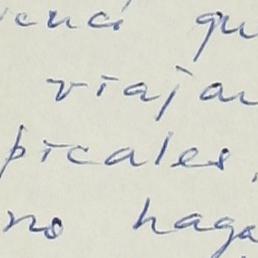 qu
viajar
picales,
no haga